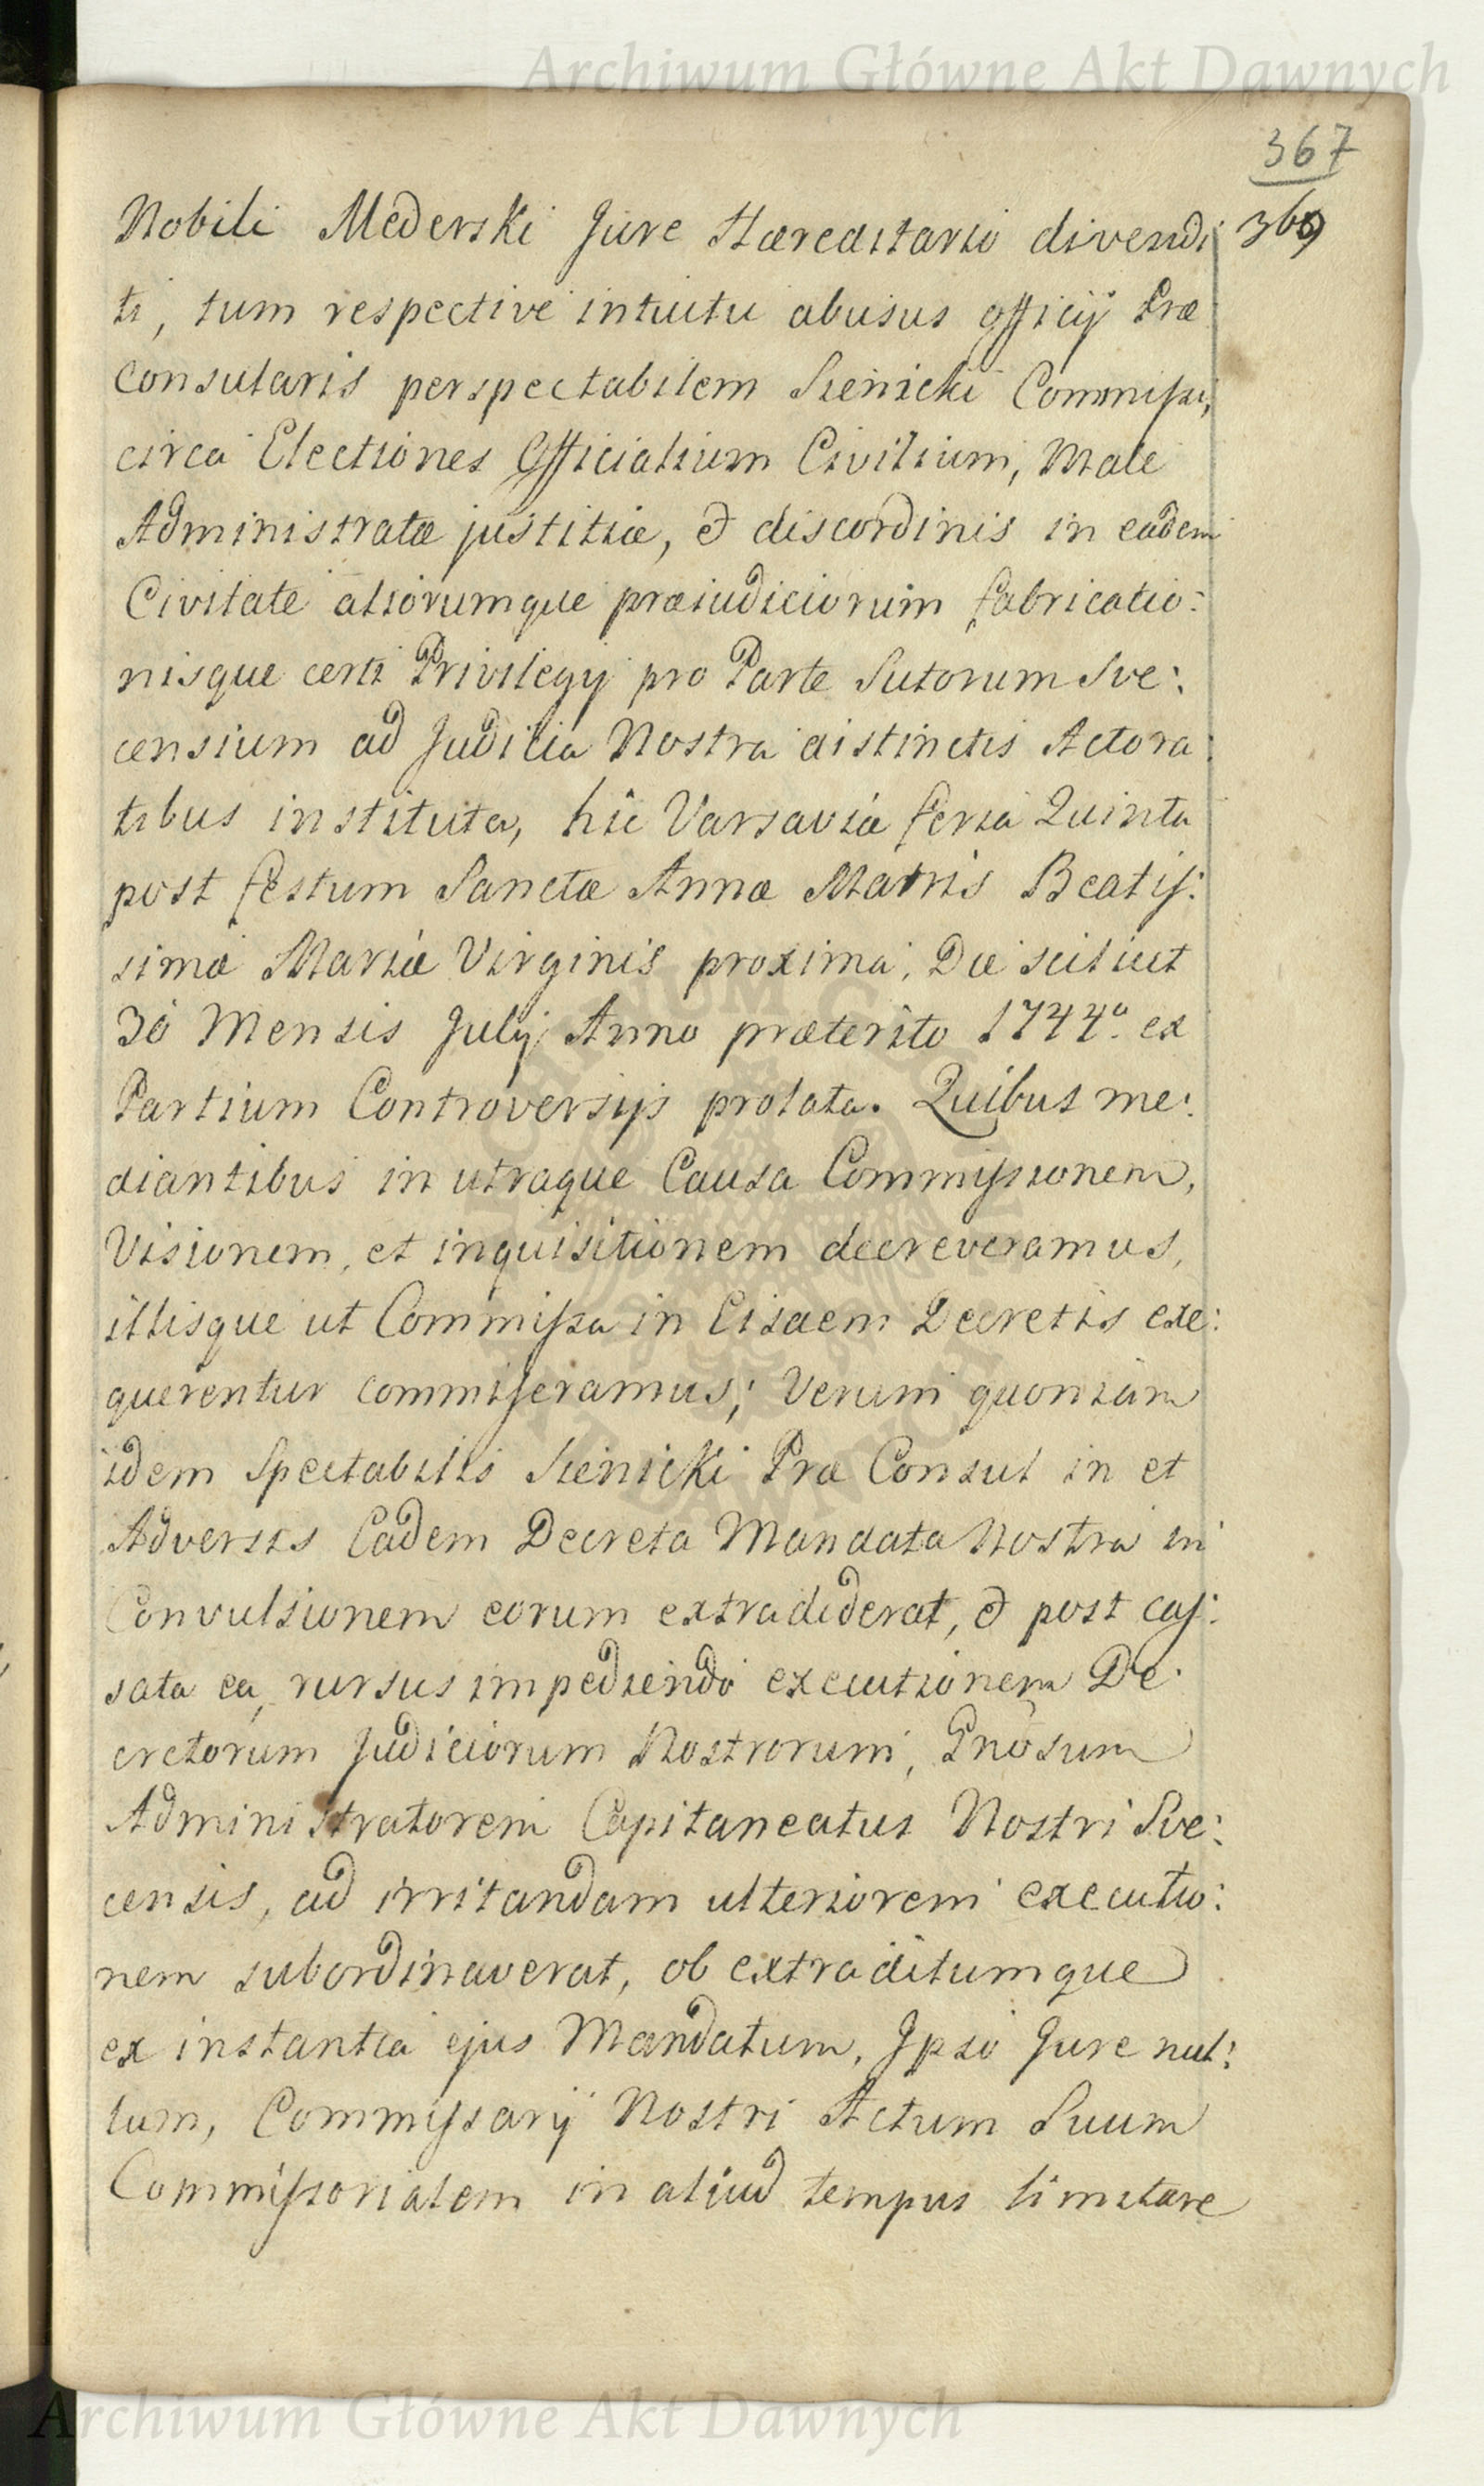 Archiwum Główne Akt Dawnych
367
369
Nobili Mederski Jure Hæreditario divendi
ti, tum respective intuitu abusus officÿ Præ
Consularis perspectabilem Sienicki Commissi,
circa Electiones Officialium Civilium, Male
Administratæ justitiæ, & discordinis in eadem
Civitate aliorumque præiudiciorum fabricatio:
nisque certi Privilegÿ pro Parte Sutorum Sve:
censium ad Judicia Nostra distinctis Actora:
tibus instituta, hic Varsaviæ feria Quinta
post festum Sanctæ Annæ Matris Beatis:
simæ Mariæ Virginis proxima, Die scilicet
30 Mensis Julÿ Anno præterito 1744º. ex
Partium Controversÿs prolata. Quibus me:
diantibus in utraque Causa Commissionem,
Visionem, et inquisitionem decreveramus,
illisque ut Commissa in Eisdem Decretis exe:
querentur commiseramus; Verum quoniam
idem Spectabilis Sienicki Præ Consul in et
Adversus Eadem Decreta Mandata Nostra in
Convulsionem eorum extradiderat, & post cas:
sata ea, rursus impediendo executionem De:
cretorum Judiciorum Nostrorum, Gnosum
Administratorem Capitaneatus Nostri Sve:
censis, ad irritandam ulteriorem executio:
nem subordinaverat, ob extraditumque
ex instantia ejus Mandatum, Ipso Jure nul:
lum, Commissarÿ Nostri Actum Suum
Commissorialem in aliud tempus limitare
ARCHIWUM GŁÓWNE AKT DAWNYCH
Archiwum Główne Akt Dawnych